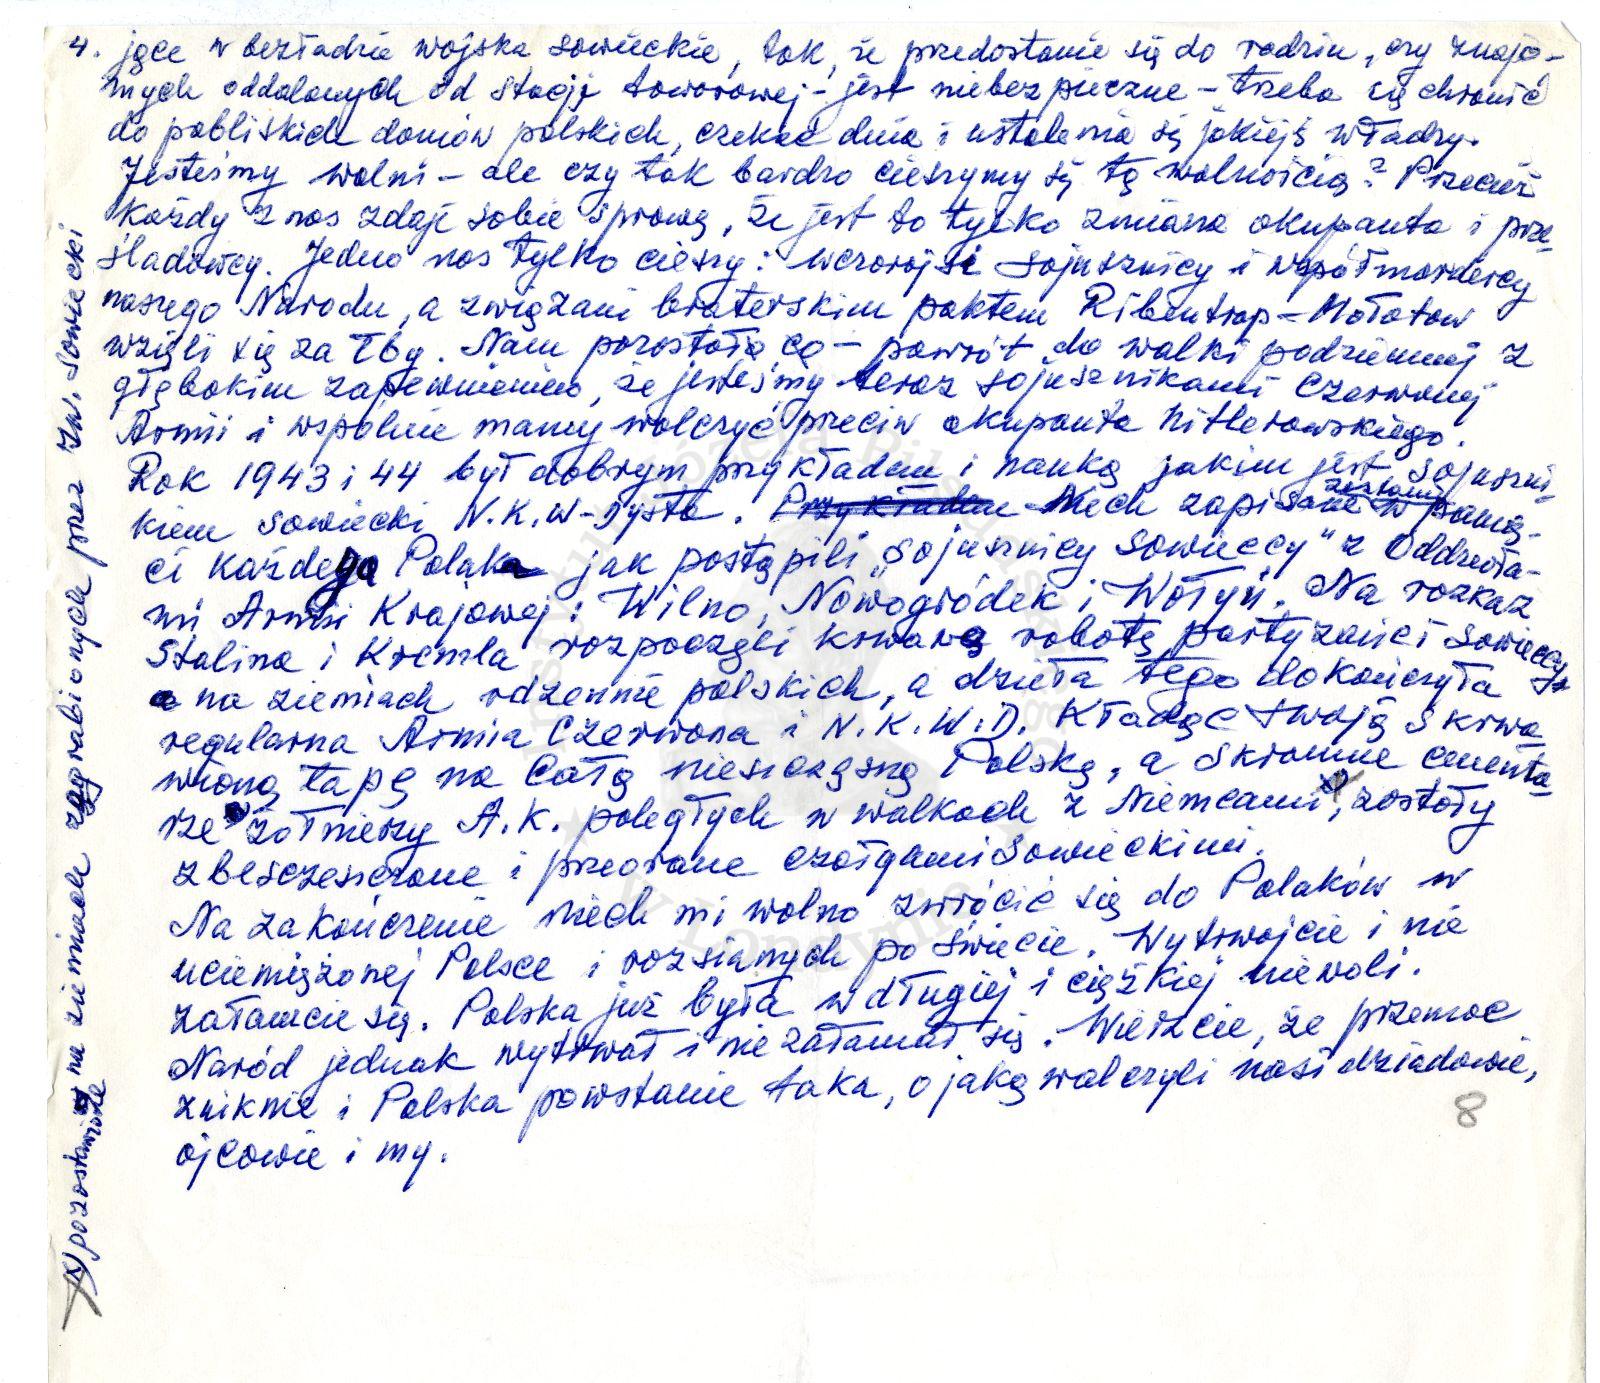 4. jące w bezładzie wojska sowieckie, tak, że przedostanie się do rodzin, czy znajo-
mych oddalonych od stacji towarowej - jest niebezpieczne - trzeba się chronić
do pobliskich domów polskich, czekać dnia i ustalenia się jakiejś władzy.
Jesteśmy wolni - ale czy tak bardzo cieszymy się tą wolnością? Przecież
każdy z nas zdaje sobie sprawę, że jest to tylko zmiana okupanta i prze-
śladowcy. Jedno nas tylko cieszy: wczorajsi sojusznicy i współmordercy
naszego Narodu, a związani braterskim paktem Ribentrop - Mołotow
wzięli się za łby. Nam pozostało co - powrót do walki podziemnej z
głębokim zapewnieniem, że jesteśmy teraz sojusznikami Czerwonej
Armii i wspólnie mamy walczyć przeciw okupanta hitlerowskiego.
Rok 1943 i 44 był dobrym przykładem i nauką jakim jest sojuszni-
kiem sowiecki N.K.W-Dysta. Przykładem Niech zapisane zostanie w pamię-
ci każdego Polaka jak postąpili „Sojusznicy Sowieccy" z Oddziała-
mi Armii Krajowej: Wilno, Nowogródek i Wołyń. Na rozkaz
Stalina i Kremla rozpoczęli krwawą robotę partyzanci sowieccy
na ziemiach rdzennie polskich, a dzieła tego dokończyła
regularna Armia Czerwona i N.K.W.D. Kładąc swoją skrwa-
wioną łapę na całą nieszczęsną Polskę, a skromne cmenta-
rze żołnierzy A.K. poległych w walkach z Niemcami x), zostały
zbeszczeszczone i przeorane czołgami sowieckimi.
Na zakończenie niech mi wolno zwrócić się do Polaków w
uciemiężonej Polsce i rozsianych po świecie. Wytrwajcie i nie
załamcie się. Polska już była w długiej i ciężkiej niewoli.
Naród jednak wytrwał i nie załamał się. Wierzcie, że przemoc
zniknie i Polska powstanie taka, o jaką walczyli nasi dziadowie,
ojcowie i my.
8
x) pozostawione na ziemiach zagrabionych przez Zw. Sowiecki
Instytut Józefa Piłsudskiego
w Londynie